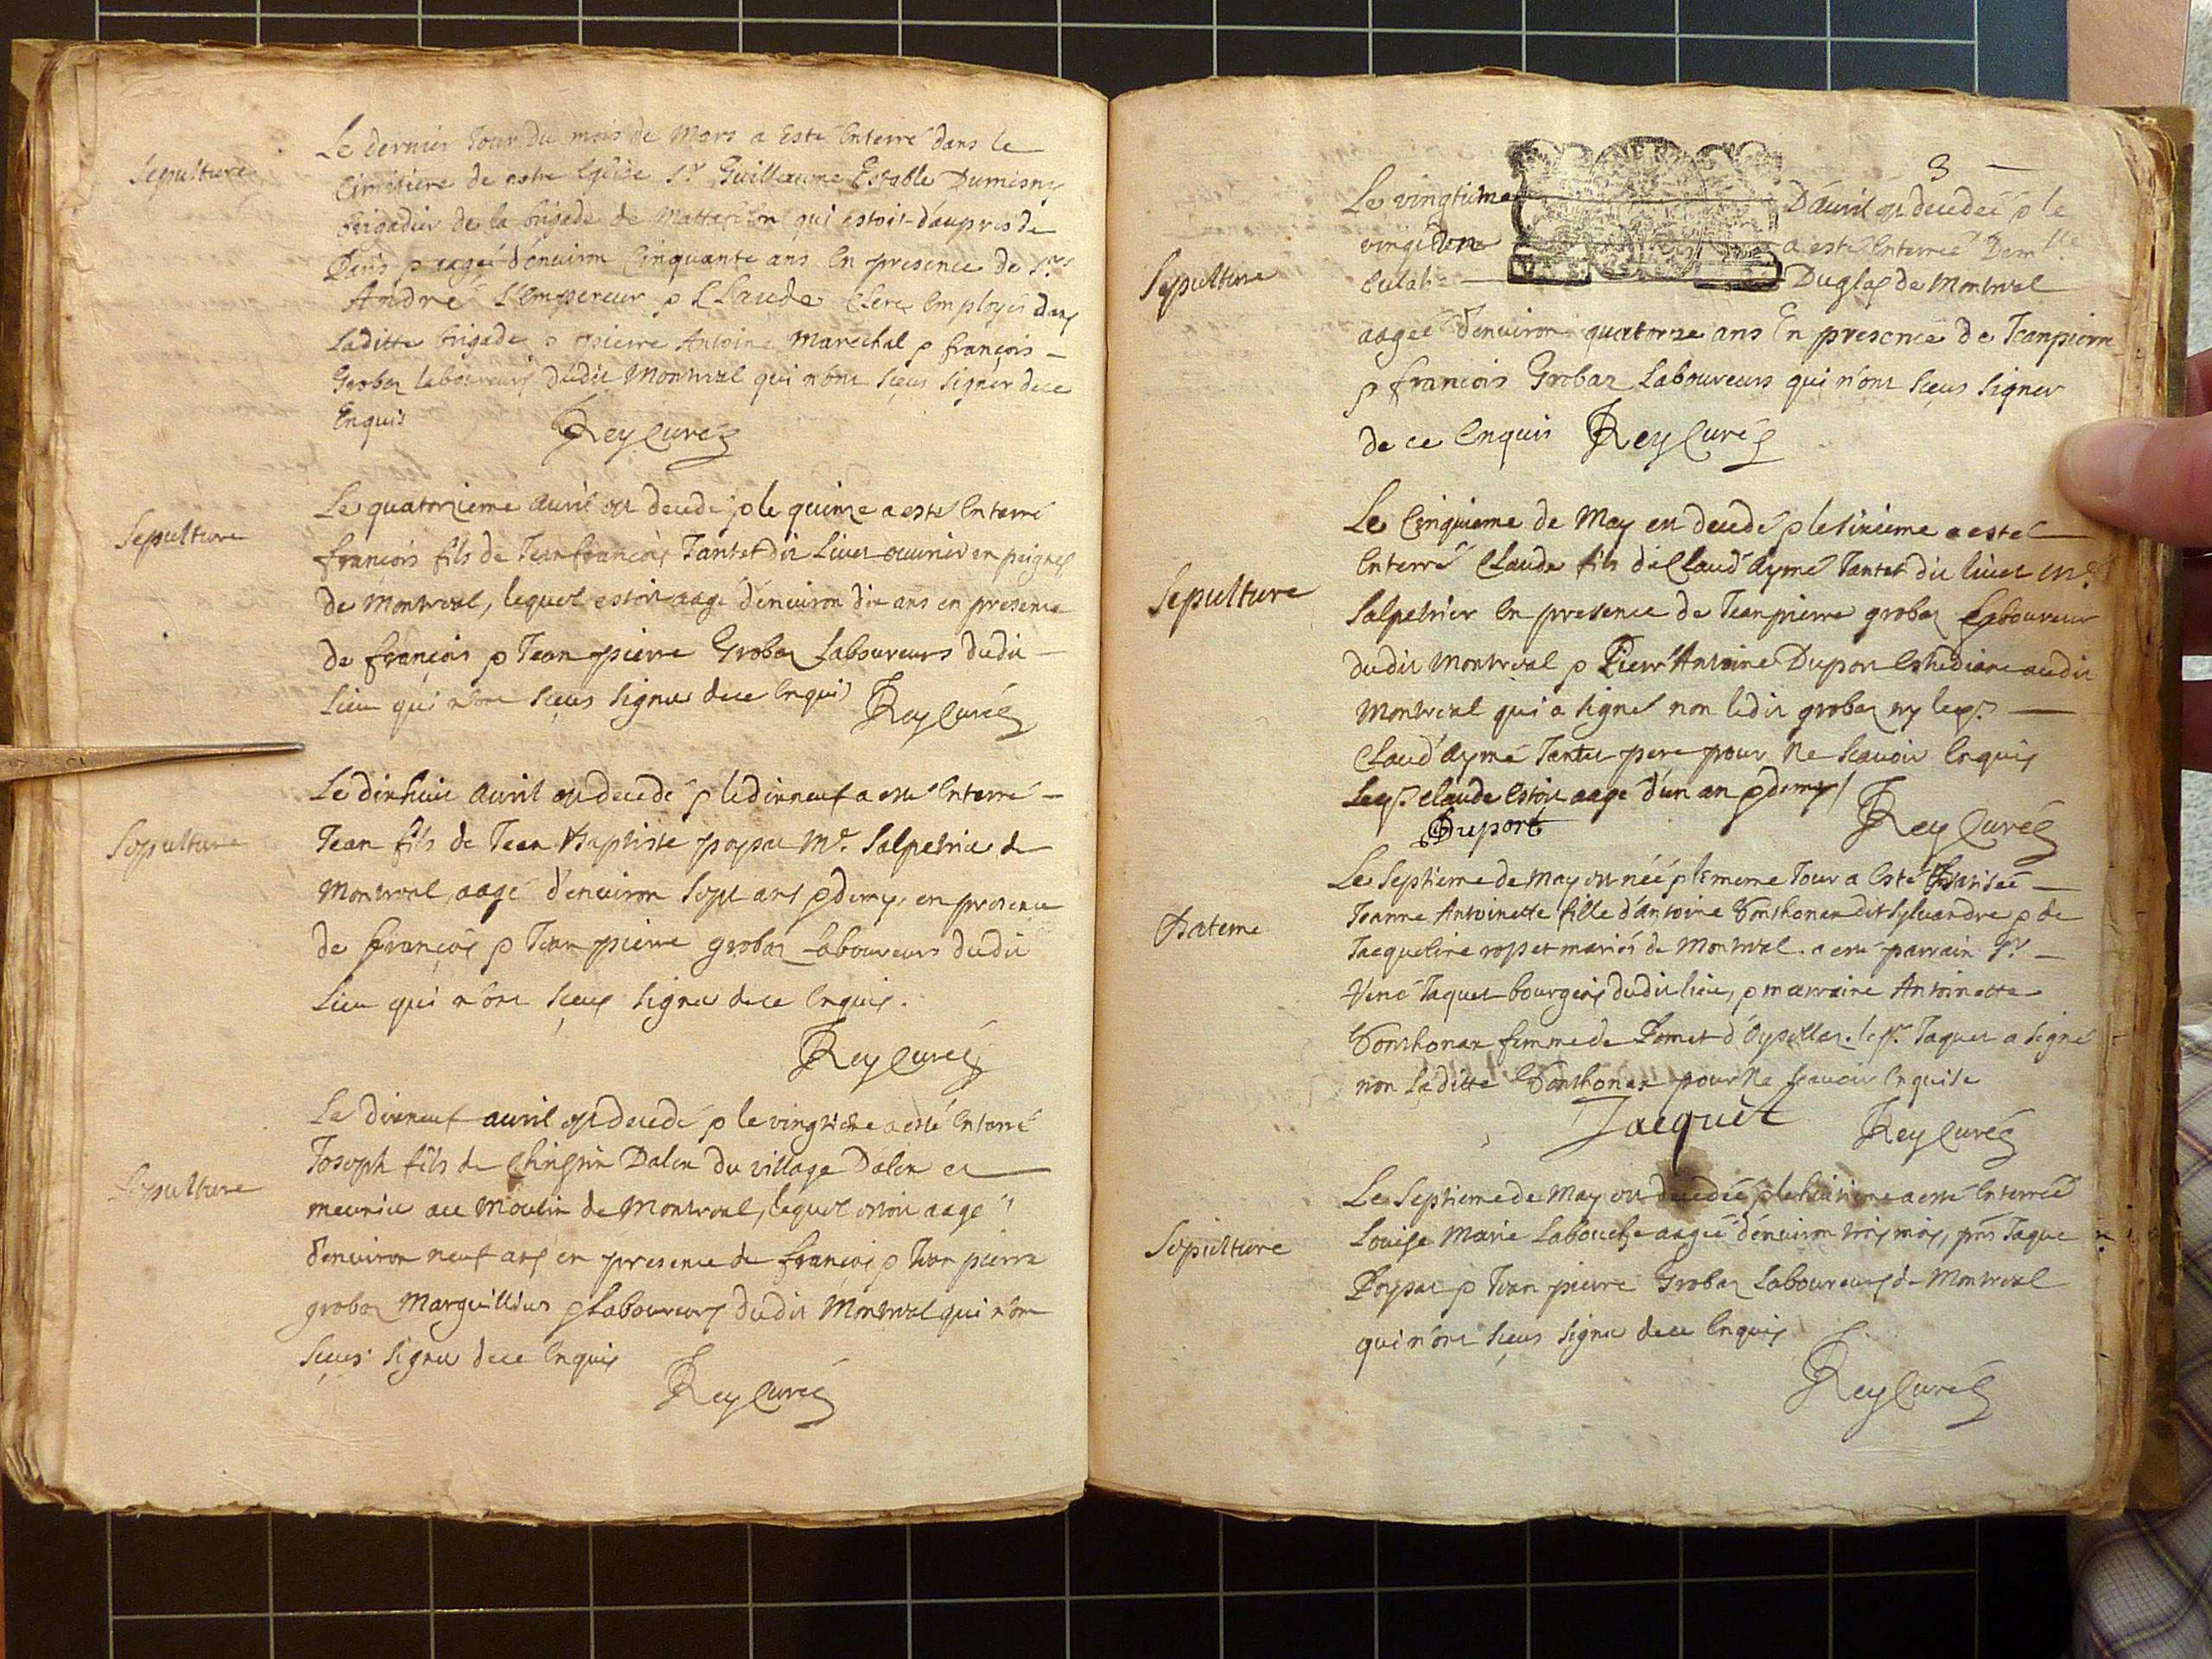 Sepulture
Le dernier Jour Du mois de Mars a Esté Enterré dans le
Cimitiere de notre Eglise Sr. Guillaume Estable Dumisny
brigadier de la brigade de qui estoit d'aupres de
Paris & aagé d'environ Cinquante ans En presence de Srs
André L'Empereur & Claude Clerc Employés dans
Laditte brigade & pierre Antoine Marechal & françois
Grobaz laboureurs dudit Montreal qui n'ont sceus signer de ce
Enquis
Rey Curé
Sepulture
Le quatorzieme avril est decedé & le quinze a esté Enterré
françois fils de Jean françois Tantet dit Livet ouvrier en peignes
de Montreal, lequel estoit aagé d'environ dix ans en presence
de françois & Jean pierre Grobaz Laboureurs dudit
Lieu qui n'ont sceus signer de ce Enquis
Rey Curé
Sepulture
Le dixhuit avril est decedé & le dixneuf a esté Enterré
Jean fils de Jean Baptiste paysac Me. salpetrier de
Montreal, aagé d'environ sept ans & demy, en presence
de françois & Jean pierre grobaz Laboureurs dudit
Lieu qui n'ont sceus signer de ce Enquis.
Rey Curé
Sepulture
Le dixneuf avril est decedé & le vingtieme a esté Enterré
Joseph fils de Dalex du village Dalex et
meunier au Moulin de Montreal, lequel estoit aagé
d'environ neuf ans en presence de françois & Jean pierre
grobaz Marguilliers & Laboureurs dudit Montreal qui n'ont
sceus signer de ce Enquis
Rey Curé
3
Sepulture
Le vingtieme D'avril est decedeé & le
vingt un a esté Enterreé Demlle
Eulalie Duglas de Montreal
aageé d'environ quatorze ans En presence de Jean pierre
& francois Grobaz Laboureurs qui n'ont sceus signer
de ce Enquis Rey Curé
Sepulture
Le Cinquieme de May est decedé & le sixieme a esté
Enterré Claude fils de Claud'aymé Tantet dit livet Me.
salpetrier En presence de Jean pierre grobaz Laboureur
dudit Montreal & Pierr'Antoine Duport Estudiant audit
Montreal qui a signé non ledit grobaz ny le
Claud'aymé Tantet pere pour Ne scavoir Enquis
Claude Estoit aagé d'un an & demy
Duport
Rey Curé
Bateme
Le Septieme de May est néé & le meme Jour a Esté Batiseé
Jeanne Antoinette fille d'antoine Bonthoner dit sylvandre & de
Jacqueline ropet mariés de Montreal. a esté parrain Sr.
René Jaquet bourgeois dudit lieu, & marraine Antoinette
Bonthonex femme de Pomet d'Oysellaz. le Sr. Jaquet a signé
non laditte Bonthonex pour Ne scavoir Enquise
Jacquet
Rey Curé
Sepulture
Le Septieme de May est decedeé & le huitieme a esté Enterreé
Louise Marie Labouche aageé d'environ trois mois, pnts Jaque
Poysac & Jean pierre Grobaz Laboureurs de Montreal
qui n'ont sceus signer de ce Enquis
Rey Curé